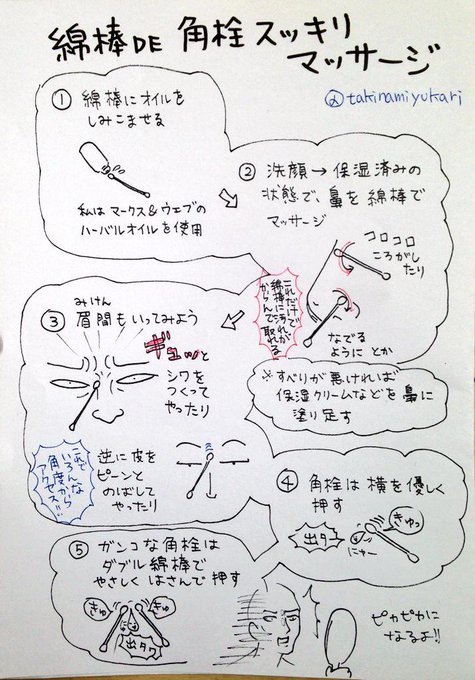 綿棒DE 角栓スッキリ
マッサージ
@takinamiyukari
① 綿棒にオイルを
しみこませる
私はマークス&ウェブの
ハーバルオイルを使用
② 洗顔→保湿済みの
状態で、鼻を綿棒で
マッサージ
コロコロ
ころがし
たり
なでる
ように とか
これだけで
綿棒に汚れが
からんで取れる
※すべりが悪ければ
保湿クリームなどを鼻に
塗り足す
③ 眉間もいってみよう
みけん
ギュッと
シワを
つくって
やったり
逆に皮を
ピーンと
のばして
やったり
これで
いろんな
角度から
アクセス!!
④ 角栓は横を優しく
押す
きゅっ
出タワ
にゃー
⑤ ガンコな角栓は
ダブル綿棒で
やさしくはさんで押す
きゅ
きゅ
出タワ
ピカピカに
なるよ!!